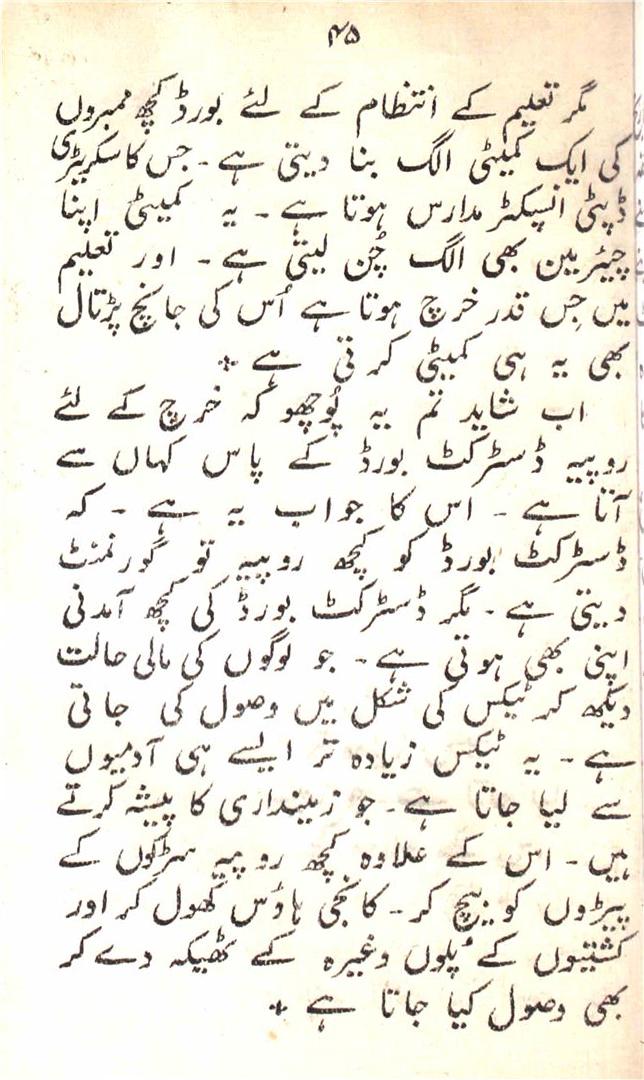 ۴۵
مگر تعلیم کے انتظام کے لئے بورڈ کچھ ممبروں
کی ایک کمیٹی الگ بنا دیتی ہے۔ جس کا سکریٹری
ڈپٹی انسپکٹر مدارس ہوتا ہے۔ یہ کمیٹی اپنا
چیئرمین بھی الگ چُن لیتی ہے۔ اور تعلیم
میں جِس قدر خرچ ہوتا ہے اُس کی جانچ پڑتال
بھی یہ ہی کمیٹی کرتی ہے *
اب شاید تم یہ پُوچھو کہ خرچ کے لئے
روپیہ ڈسٹرکٹ بورڈ کے پاس کہاں سے
آتا ہے۔ اس کا جواب یہ ہے۔ کہ
ڈسٹرکٹ بورڈ کو کچھ روپیہ تو گورنمنٹ
دیتی ہے۔ مگر ڈسٹرکٹ بورڈ کی کچھ آمدنی
اپنی بھی ہوتی ہے۔ جو لوگوں کی مالی حالت
دیکھ کر ٹیکس کی شکل میں وصول کی جاتی
ہے۔ یہ ٹیکس زیادہ تر ایسے ہی آدمیوں
سے لیا جاتا ہے۔ جو زمینداری کا پیشہ کرتے
ہیں۔ اس کے علاوہ کچھ روپیہ سڑکوں کے
پیڑوں کو بیچ کر۔ کانجی ہاؤس کھول کر اور
کشتیوں کے پُلوں وغیرہ کے ٹھیکہ دے کر
بھی وصول کیا جاتا ہے *